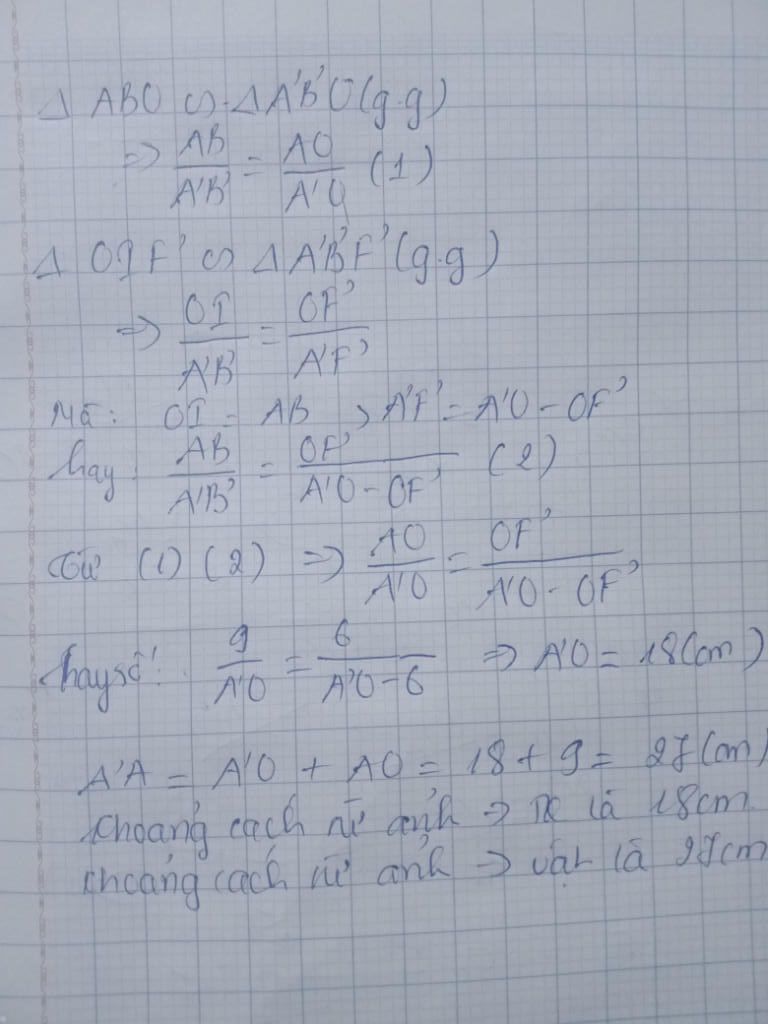 Δ ABO ∽ Δ A'B'O (g.g)
=> AB/A'B' = AO/A'O (1)
Δ OIF' ∽ Δ A'B'F' (g.g)
=> OI/A'B' = OF'/A'F'
Mà: OI = AB, A'F' = A'O - OF'
hay: AB/A'B' = OF'/A'O - OF' (2)
từ (1) (2) => AO/A'O = OF'/A'O - OF'
thay số: 9/A'O = 6/A'O - 6 => A'O = 18(cm)
A'A = A'O + AO = 18 + 9 = 27(cm)
khoảng cách từ ảnh => TK là 18cm
khoảng cách từ ảnh => vật là 27cm